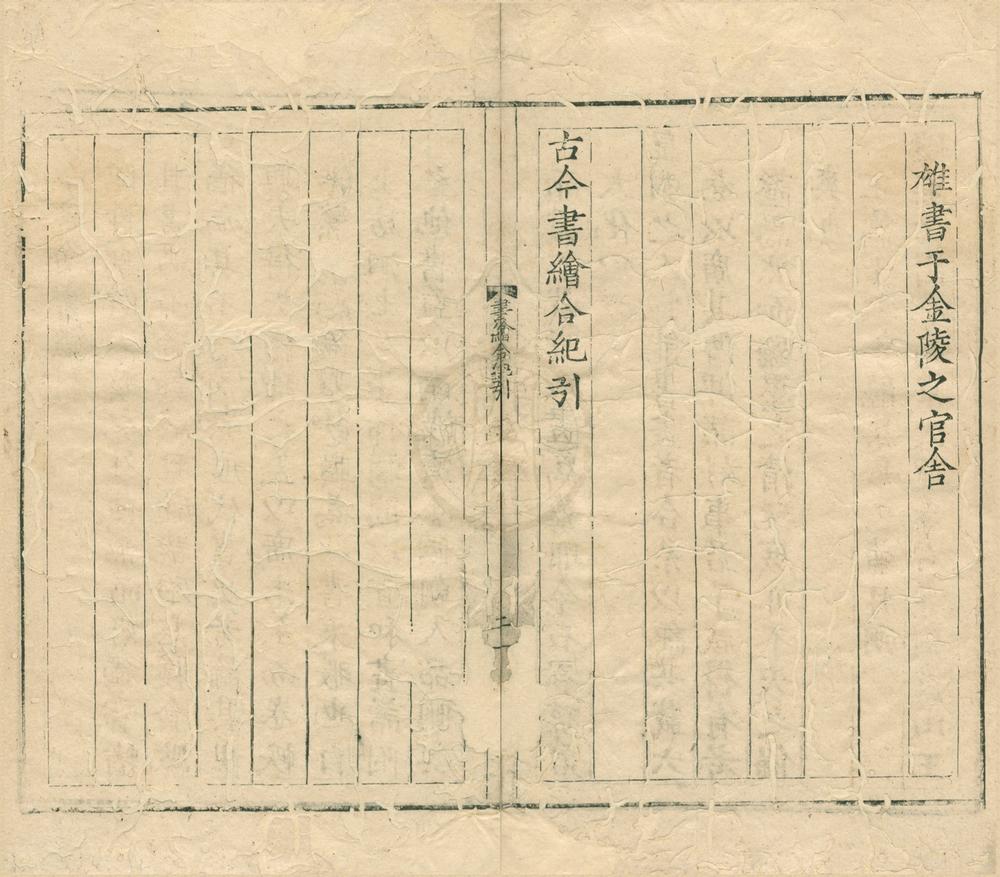 雄書于金陵之官舍
古今書繪合紀引
書繪合紀引
二